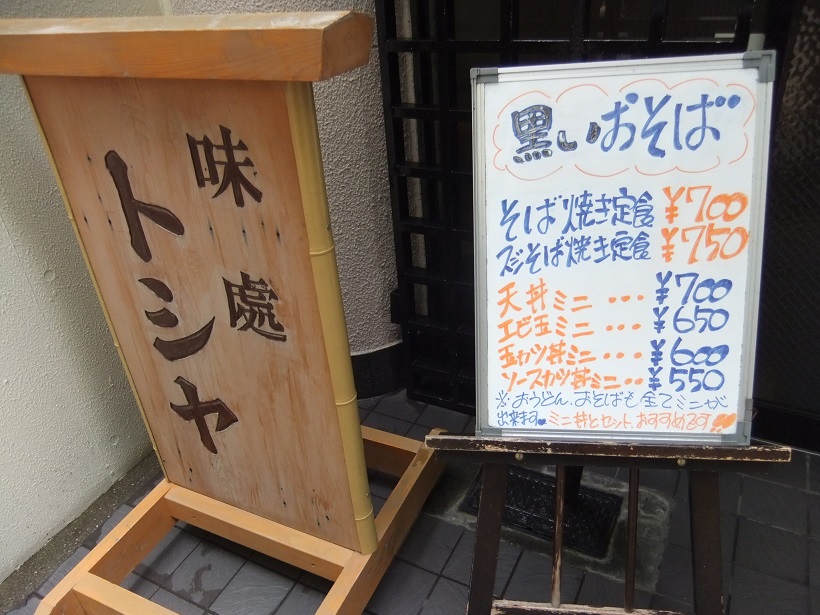 味處
トシヤ
黒いおそば
そば焼き定食 ¥700
スジそば焼き定食 ¥750
天丼ミニ・・・¥700
エビ玉ミニ・・・¥650
玉カツ丼ミニ・・・¥600
ソースカツ丼ミニ・・¥550
※おうどん、おそばも全てミニが
出来ます ミニ丼とセット、おすすめです!!